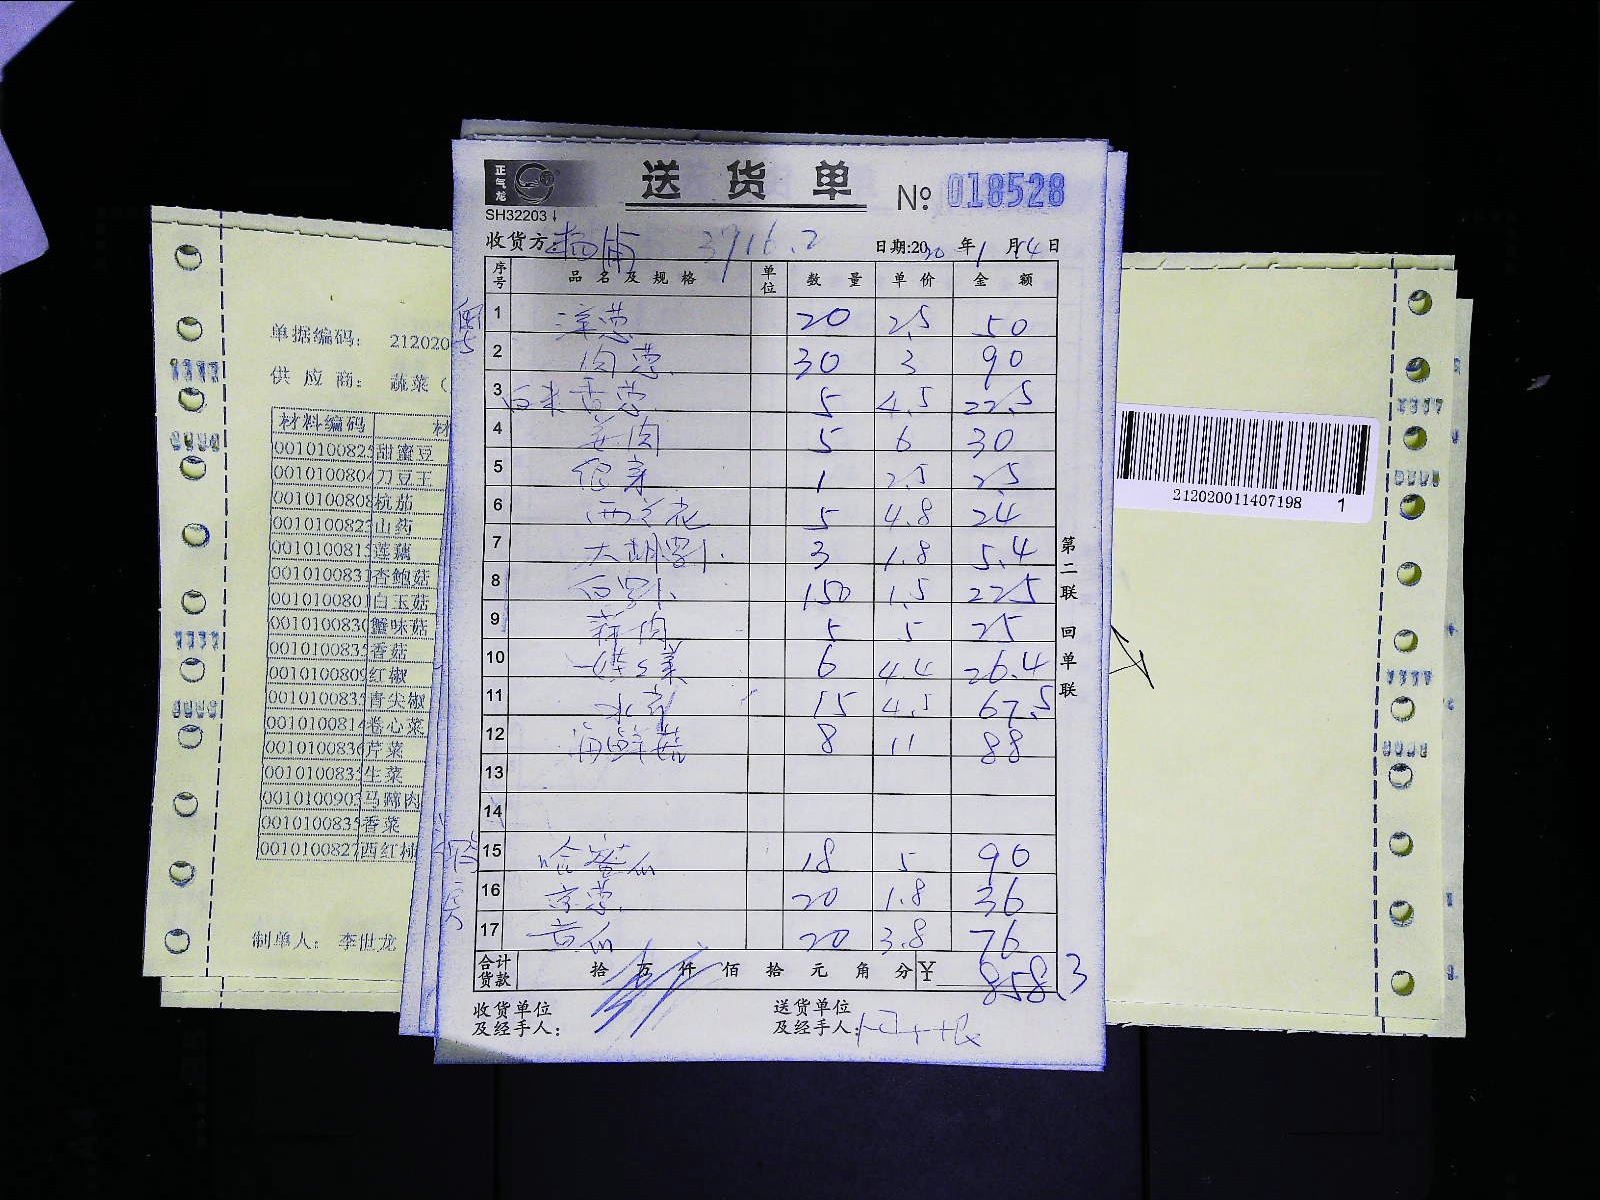 正气龙
送货单
№ 018528
SH32203
收货方: 杨浦 3716.2 日期:2020年1月14日
序号 品名及规格 单位 数量 单价 金额
1 洋葱 20 2.5 50
2 肉葱 30 3 90
3 白米香葱 5 4.5 22.5
4 姜肉 5 6 30
5 1 25 25
6 西兰花 5 4.8 24
7 大胡萝卜 3 1.8 5.4
8 白萝卜 150 1.5 225
9 蒜肉 5 5 25
10 6 4.4 26.4
11 水芹 15 4.5 67.5
12 海鲜菇 8 11 88
13
14
15 哈密瓜 18 5 90
16 京葱 20 1.8 36
17 黄瓜 20 3.8 76
合计货款 拾万仟佰拾元角分 ¥ 858.3
收货单位及经手人:
送货单位及经手人:
第二联 回单联
单据编码: 212020
供应商: 蔬菜(
材料编码 材
0010100825 甜蜜豆
001010080 刀豆王
0010100808 杭茄
001010082 山药
001010081 莲藕
001010083 杏鲍菇
001010080 白玉菇
001010083 蟹味菇
001010083 香菇
0010100809 红椒
001010083 青尖椒
001010081 卷心菜
001010083 芹菜
001010083 生菜
001010090 马蹄肉
001010083 香菜
0010100827 西红柿
制单人: 李世龙
212020011407198 1